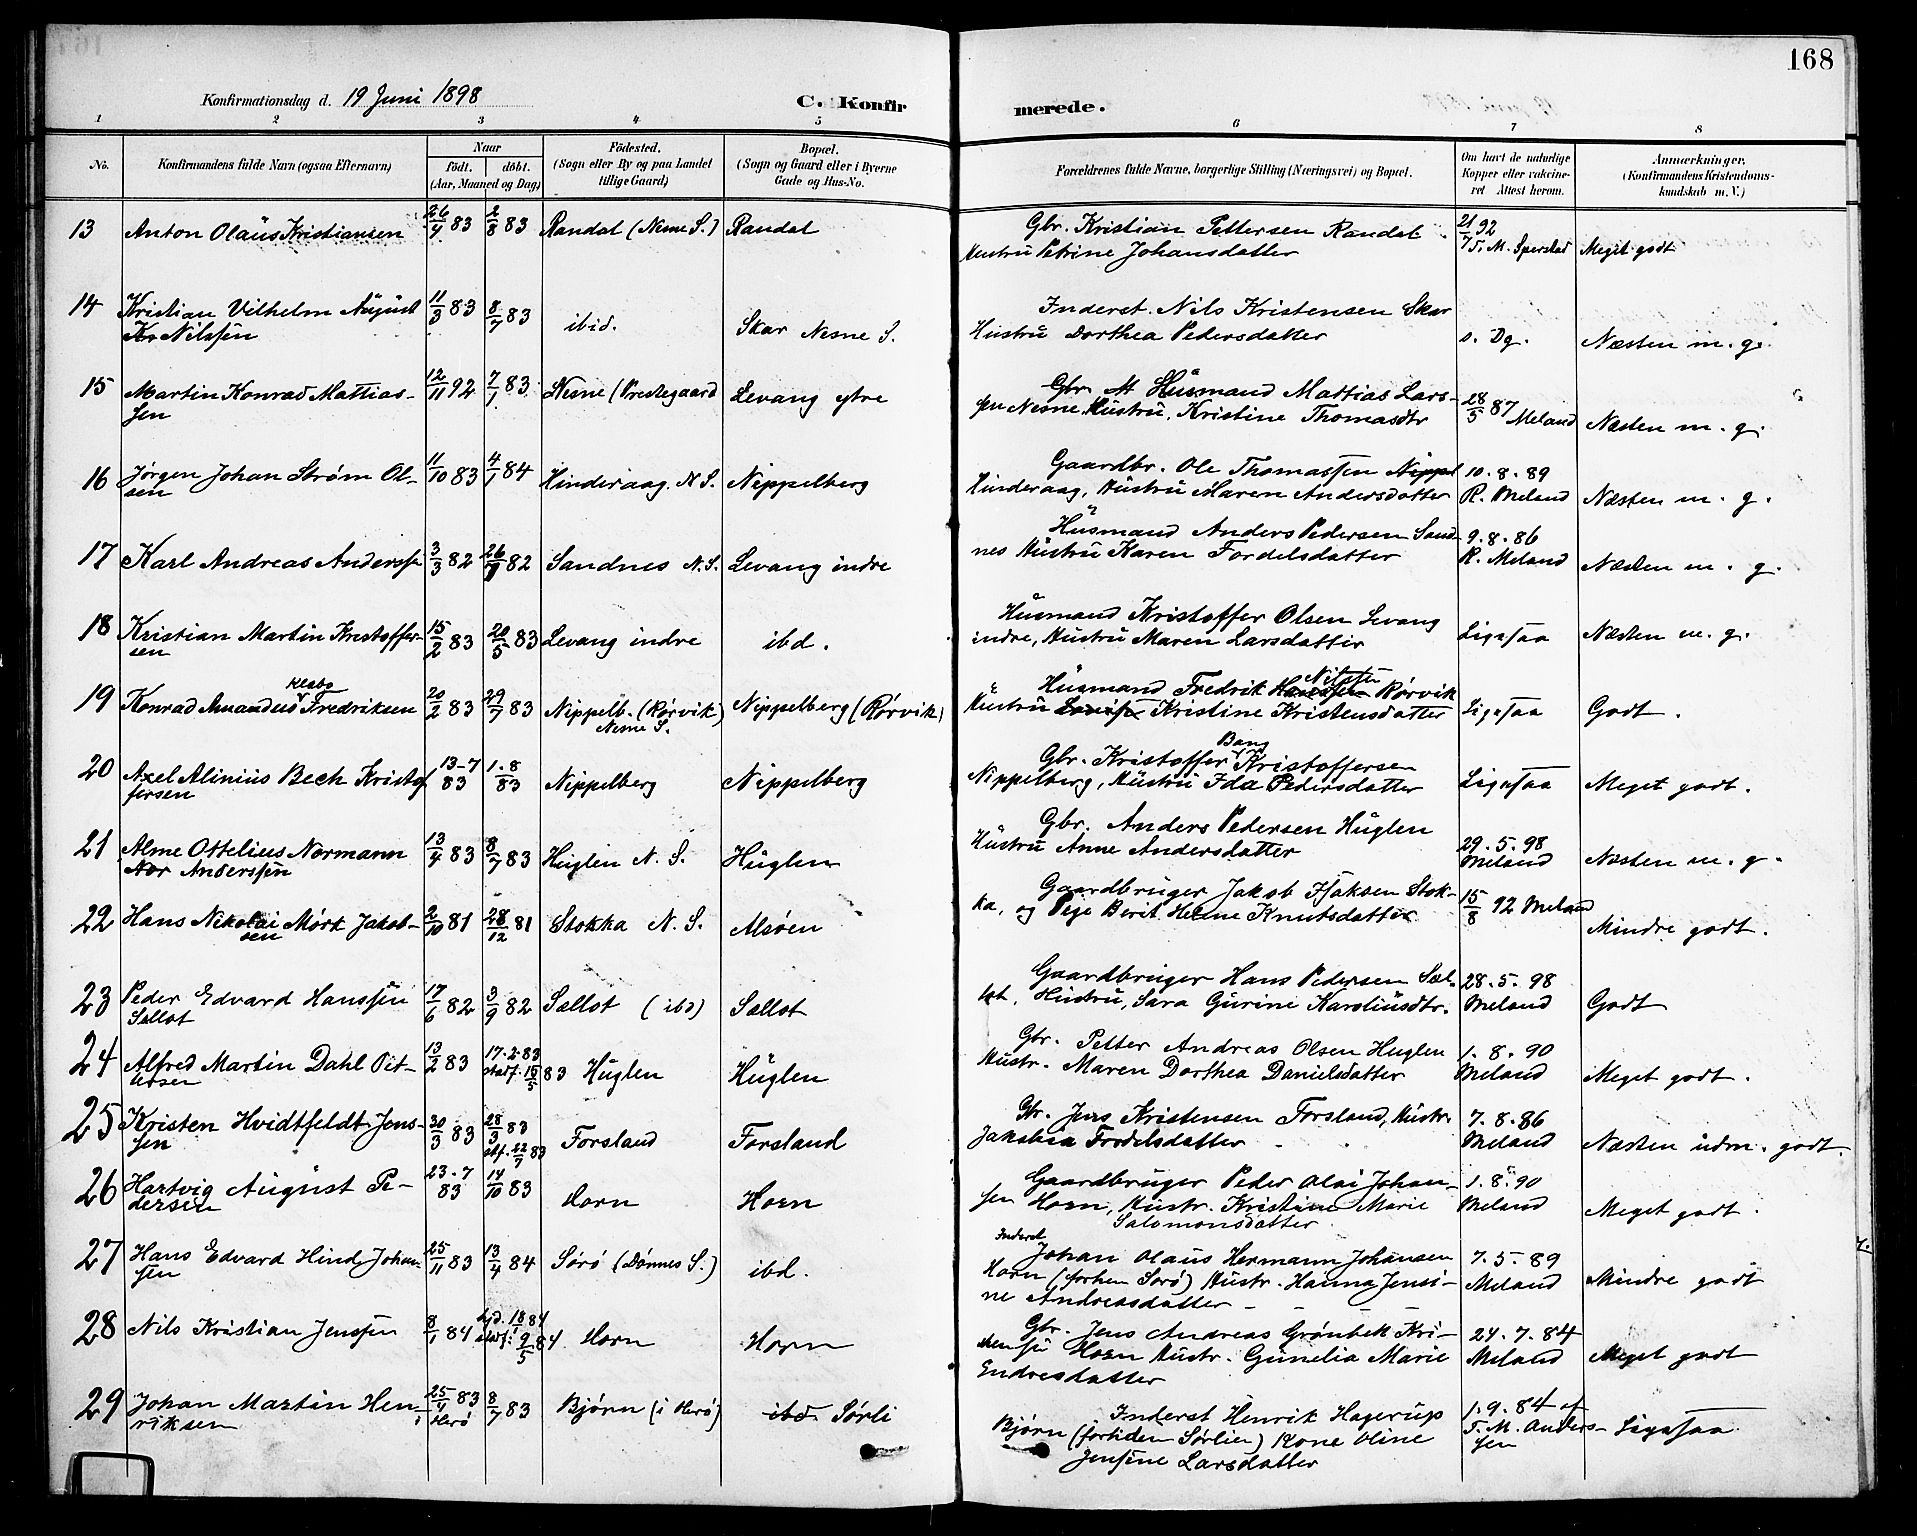 168
Konfirmationsdag d. 19 Juni 1898
C. Konfir
merede.
1 2 3 4 5 6 7 8
No.
Konfirmandens fulde Navn (ogsaa Efternavn)
Naar
født. døbt.
(Aar, Maaned og Dag)
Födested.
(Sogn eller By og paa Landet
tillige Gaard)
Bopæl.
(Sogn og Gaard eller i Byerne
Gade og Hus-No.
Forældrenes fulde Navne, borgerlige Stilling (Næringsvei) og Bopæl.
Om havt de naturlige
Kopper eller vaccine-
ret Attest herom.
Anmærkninger.
(Konfirmandens Kristendoms-
kundskab m. V.)
13 Anton Olaüs Kristiansen 26/4 83 2/8 83 Randal (Nesne S.) Randal
Gbr. Kristian Pettersen Randal 21/7 92
Hustrü Petrine Johansdatter T. M. Sperstad Meget godt
14 Kristian Vilhelm August 11/3 83 8/7 83 ibid. Skar Nesne S.
Kr Nilssen
Inderst. Nils Kristensen Skar
Hüstrü Dorthea Pedersdatter s. Dg. Næsten m. g.
15 Martin Konrad Mattias- 12/11 92 7/1 83 Nesne (Prestegaard Levang ytre
sen
Gbr. M Hüsmand Mattias Lars-
sen Nesne, Hüstrü, Kristine Thomasdtr 28/5 87 Meland Næsten m. g.
16 Jørgen Johan Strøm Ol- 11/10 83 4/1 84 Hinderaag. N. S. Nippelberg
sen
Gaardbr. Ole Thomassen Nippel 10.8.89
Hinderaag, Hüstrü Maren Andersdatter R. Meland Næsten m. g.
17 Karl Andreas Anderss. 3/3 82 26/ 82 Sandnes N. S. Levang indre
Hüsmand Anders Pedersen Sand- 9.8.86
nes Hüstrü Karen Fordelsdatter R. Meland Næsten m. g.
18 Kristian Martin Kristoffer- 15/2 83 20/5 83 Levang indre ibd.
sen
Hüsmand Kristoffer Olsen Levang
indre, Hüstrü Maren Larsdatter Ligesaa Næsten m. g.
19 Konrad Amandus Klabo Fredriksen 20/2 83 29/7 83 Nippelb. (Rørvik) Nippelberg (Rørvik)
Nesne S.
Nilssen
Hüsmand Fredrik Hanssen Rørvik
Hüstrü Kristine Kristensdatter Ligesaa Godt.
20 Axel Alinius Bech Kristof 13-7 83 1.8 83 Nippelberg Nippelberg
fersen
Bang
Gbr. Kristoffer Kristoffersen
Nippelberg, Hüstrü Ida Pedersdatter Ligesaa Meget godt.
21 Alme Ottelius Normann 13/4 83 8/7 83 Huglen N. S. Hüglen
Nor Anderssen
Gbr. Anders Pedersen Hüglen
Hüstrü Anne Andersdatter 29.5.98
Meland Næsten m. g.
22 Hans Nikolai Mørk Jakob- 2/10 81 28/12 81 Stokka N. S. Alsøen
sen
Gaardbruger Jakob Isaksen Stok-
ka, og Pige Berit Helene Knutsdatter 15/8 92 Meland Mindre godt.
23 Peder Edvard Hanssen 17/6 82 3/9 82 Sællot (ibd) Sællot
Sællot
Gaardbruger Hans Pedersen Sæl- 28.5.98
lot, Hustru, Sara Gurine Karoliüsdtr. Meland Godt
24 Alfred Martin Dahl Pet- 13/2 83 17.2.83 Huglen Hüglen
tersen stadf. 15/5 83
Gbr. Petter Andreas Olsen Huglen 1.8.90
Hustr. Maren Dorthea Danielsdatter Meland Meget godt.
25 Kristen Hvidtfeldt Jens- 30/3 83 28/3 83 Forsland Forsland
sen stf. 22/7 83
Gbr. Jens Kristensen Forsland, Hustr. 7.8.86
Jakobea Frodelsdatter Meland Næsten udm. godt.
26 Hartvig August Pe- 23-7 83 14/10 83 Horn Horn
dersen
Gaardbruger Peder Olai Johan- 1.8.90
sen Horn, Hustr. Kristine Marie Meland Meget godt.
Salomonsdatter
27 Hans Edvard Hind Johan 25/11 83 13/4 84 Sørø (Dønnes S.) ibd.
sen
Inderst
Johan Olaus Hermann Johansen 7.5.89
Horn (forhen Sørø) Hustr. Hanna Jensi- Meland Mindre godt
ne Andreasdatter
28 Nils Kristian Jenssen 8/1 84 stadf. 9/5 84 Horn Horn
Gbr. Jens Andreas Grønbek Kri- 24.7.84
stensen Horn Hustr. Gunelia Marie Meland Meget godt
Endresdatter
29 Johan Martin Hen- 25/4 83 8/7 83 Bjørn (i Herø) ibd. Sørli
riksen i Herø
Inderst Henrik Hagerup 1.9.84 af
Bjørn (fortiden Sørlien) Kone Oline T. M. Anders- Ligesaa
Jensine Larsdatter sen